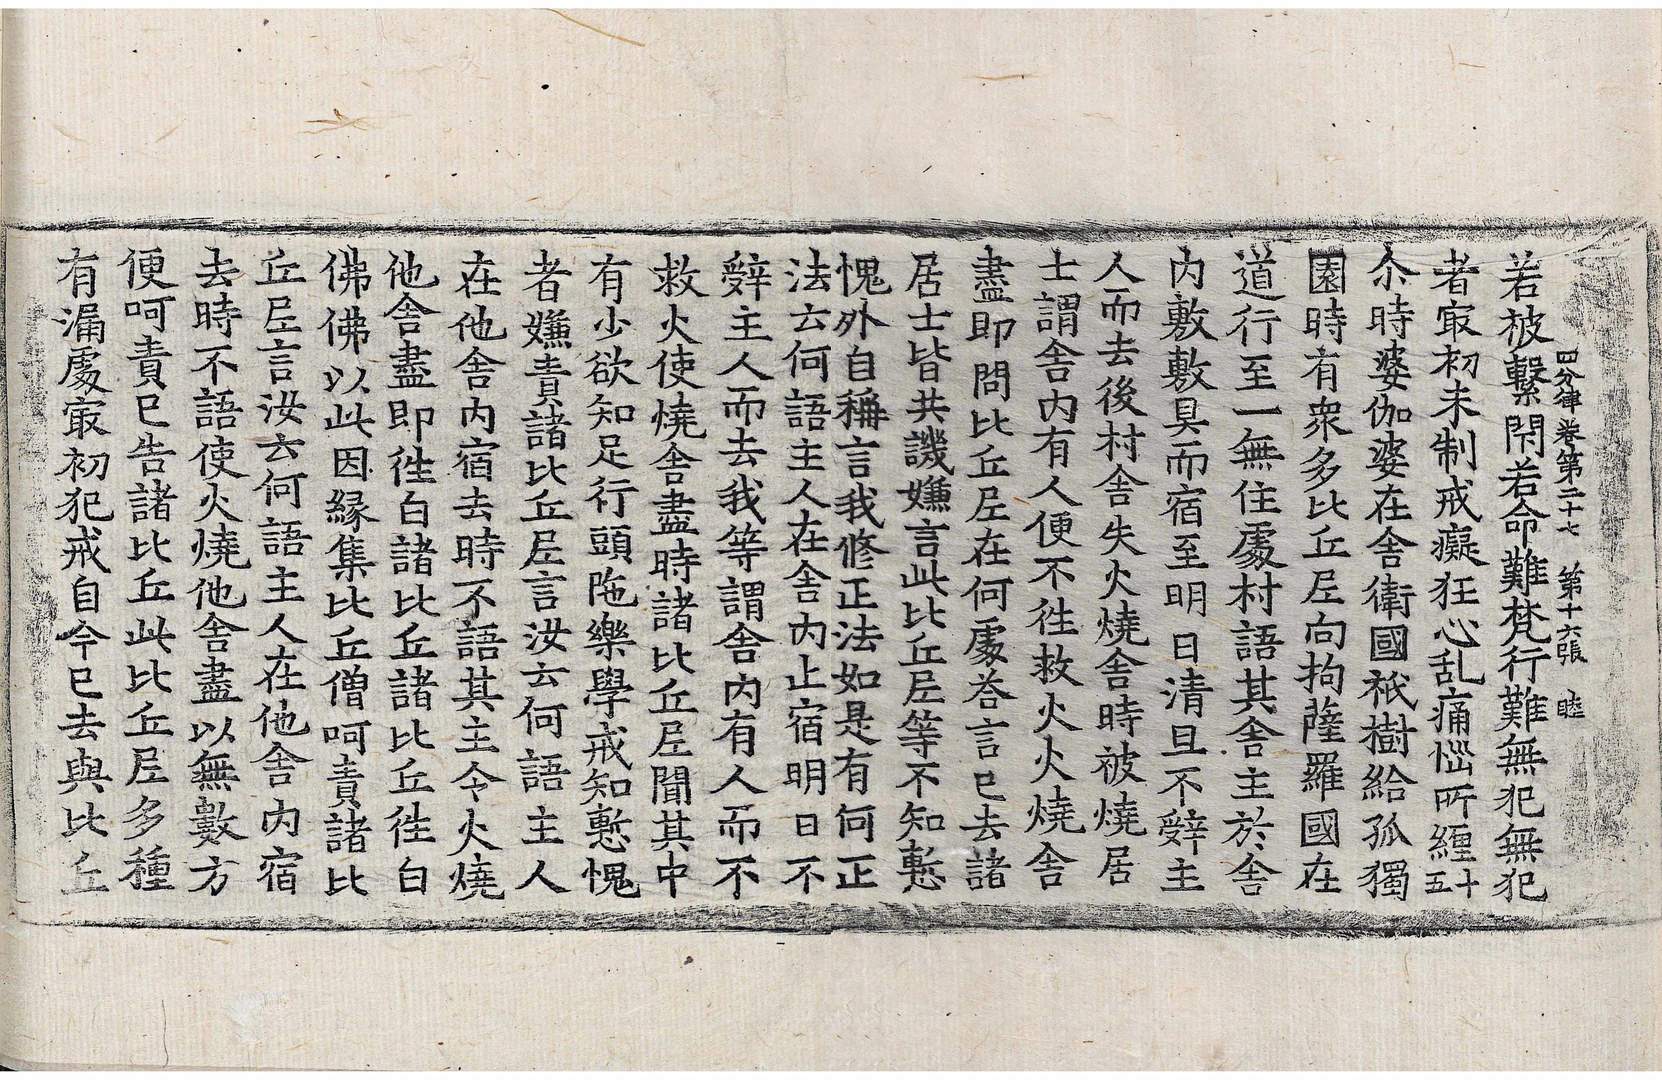 四分律卷第二十七　第十六張　睦
若被繫閇若命難梵行難無犯無犯
者㝡初未制戒癡狂心乱痛惱所纏五十
尒時婆伽婆在舍衛國祇樹給孤獨
園時有衆多比丘尼向拘薩羅國在
道行至一無住處村語其舍主於舍
内敷敷具而宿至明日清旦不辤主
人而去後村舍失火燒舍時被燒居
士謂舍内有人便不徃救火火燒舍
盡即問比丘尼在何處荅言已去諸
居士皆共譏嫌言此比丘尼等不知慙
愧外自稱言我修正法如是有何正
法云何語主人在舍内止宿明日不
辤主人而去我等謂舍内有人而不
救火使燒舍盡時諸比丘尼聞其中
有少欲知足行頭陁樂學戒知慙愧
者嫌責諸比丘尼言汝云何語主人
在他舍内宿去時不語其主令火燒
他舍盡即徃白諸比丘諸比丘徃白
佛佛以此因縁集比丘僧呵責諸比
丘尼言汝云何語主人在他舍内宿
去時不語使火燒他舍盡以無數方
便呵責已告諸比丘此比丘尼多種
有漏處㝡初犯戒自今已去與比丘